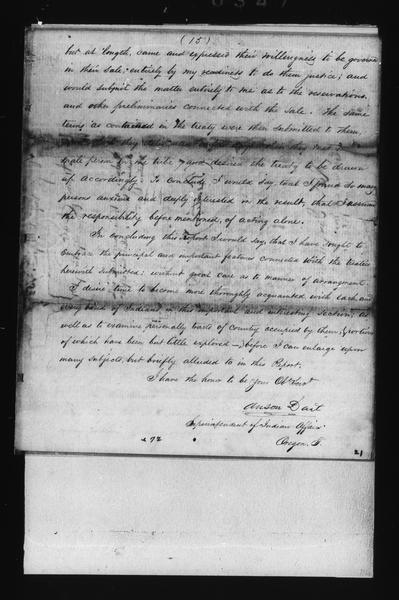 (15)
but at length, came and expressed their willingness to be governed
in their sale, entirely by my readiness to do them justice; and
would submit the matter entirely to me as to the reservations,
and other preliminaries connected with the sale. The same
terms as contained in the treaty were then submitted to them
the tribe and desired the treaty to be drawn
up accordingly. To conclude I would say, that I found so many
persons anxious and deeply interested in the result, that I assumed
the responsibility before mentioned, of acting alone.
In concluding this Report I would say, that I have sought to
embrace the principal and important features connected with the treaties
herewith submitted; without great care as to manner or arrangement.
I desire time to become more thoroughly acquainted with each and
every band of Indians in this important and interesting section; as
well as to examine personally tracts of country occupied by them; portions
of which have been but little explored — before I can enlarge upon
many subjects, but briefly alluded to in this Report.
I have the honor to be your Obt Servt
Anson Dart
Superintendent of Indian Affairs
Oregon T.
21